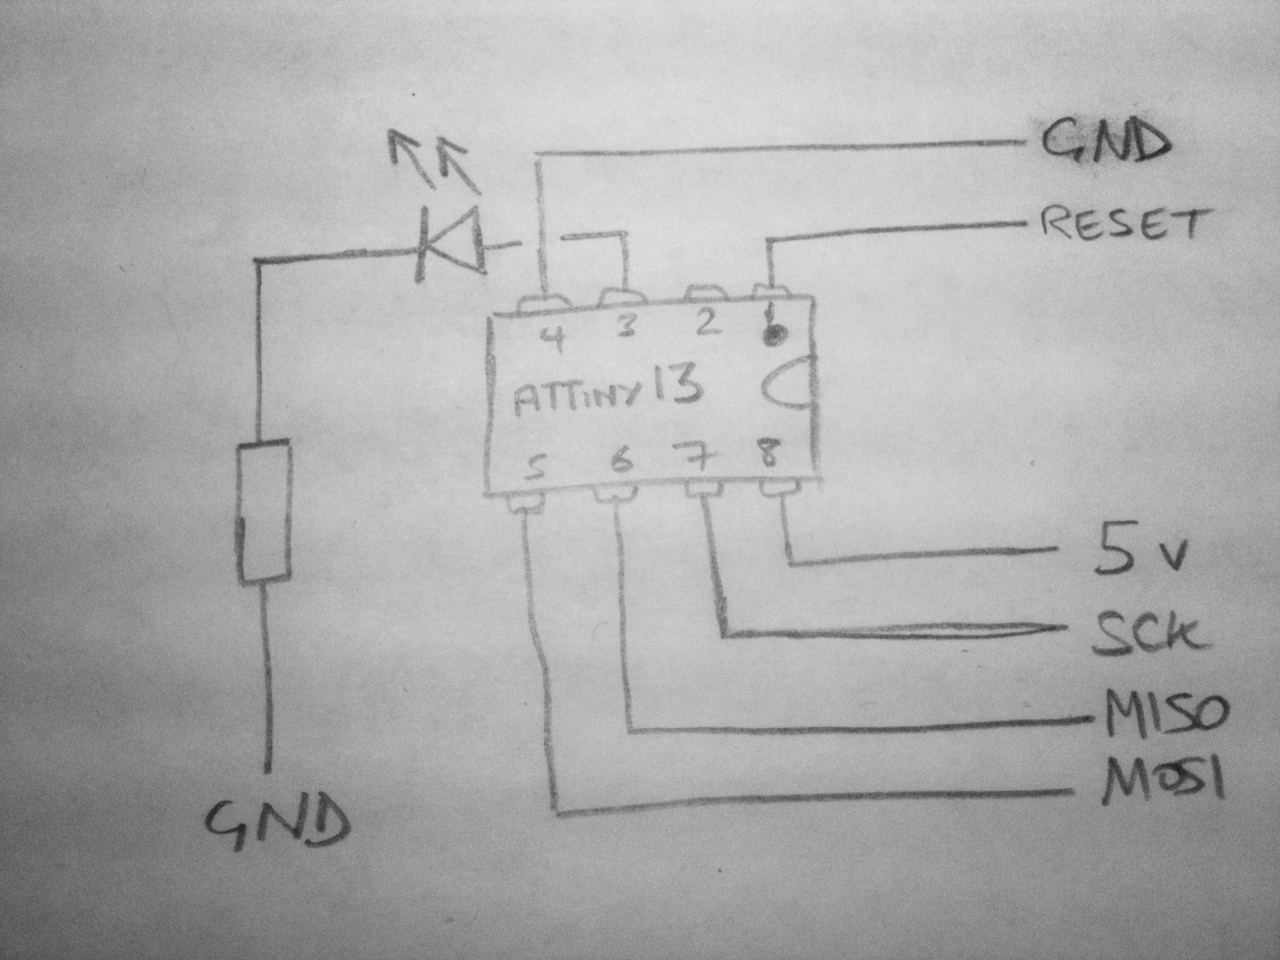 GND
RESET
4 3 2 1
ATTiny 13
5 6 7 8
5v
SCK
MISO
MOSI
GND